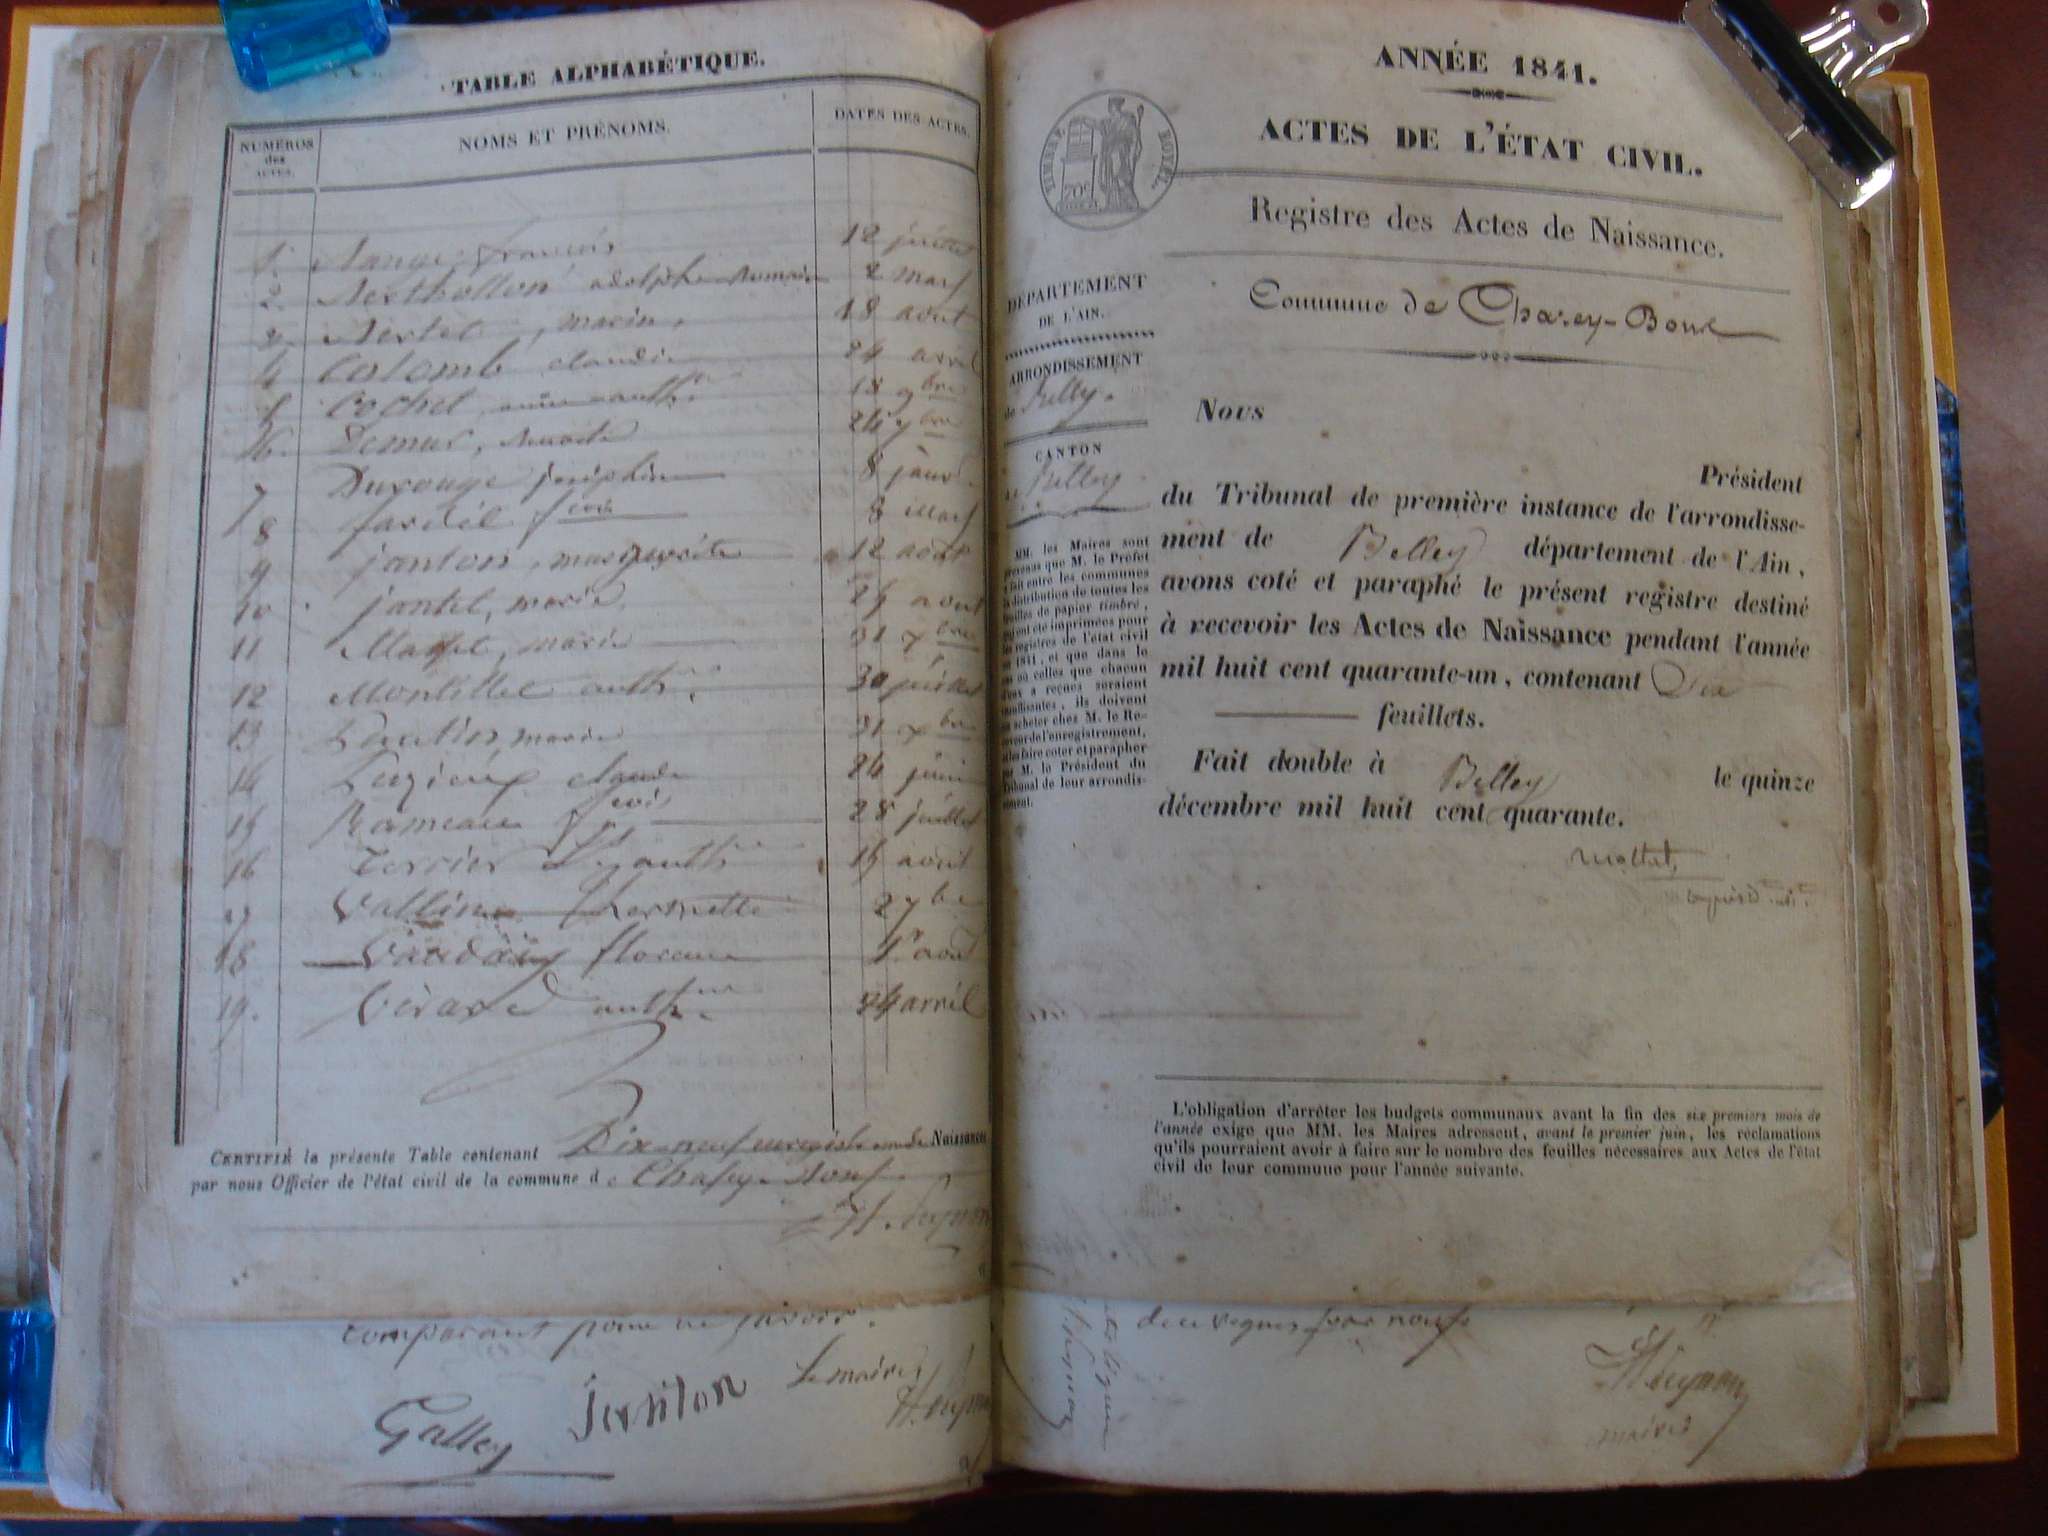 TABLE ALPHABÉTIQUE.
NUMÉROS des ACTES.
NOMS ET PRÉNOMS.
DATES DES ACTES.
1. françois 12 juillet
2. Berthollon adolphe Romain 2 mars
3. Bertet, marie, 18 aout
4 Colomb claudine 24 avril
5 Cochet anth.ne 18 9bre
6. Demur, Benoite 24 7bre
7 Durouge joséphine 8 janv.
8 fardel fcois 8 Mars
9 janton, marguerite 12 aout
10 jantel, marie, 25 aout
11 marie 31 xbre
12 Montillet anth. 30 juillet
13 marie 31 xbre
14 claude 24 juin
15 Rameau fcois 28 juillet
16 Terrier anth 15 avril
17 Vallin 2 7bre
18 florence 1r aout
19. Vérard anth 24 avril
CERTIFIÉ la présente Table contenant Dix-neuf enregistrem. de Naissances
par nous Officier de l'état civil de la commune de Chazey-Bons
comparant pour ne savoir.
Galley janton Le maire
ANNÉE 1841.
ACTES DE L'ÉTAT CIVIL.
TIMBRE ROYAL.
70c
Registre des Actes de Naissance.
DÉPARTEMENT
DE L'AIN.
Commune de Chazey-Bons
ARRONDISSEMENT
de Belley.
CANTON
de Belley
MM. les Maires sont
prévenus que M. le Préfet
a fait entre les communes
la distribution de toutes les
feuilles de papier timbré,
qui ont été imprimées pour
les registres de l'état civil
en 1841, et que dans le
cas où celles que chacun
d'eux a reçues seraient
insuffisantes, ils doivent
en acheter chez M. le Re-
ceveur de l'enregistrement,
et les faire coter et parapher
par M. le Président du
Tribunal de leur arrondis-
sement.
Nous
Président
du Tribunal de première instance de l'arrondisse-
ment de Belley département de l'Ain,
avons coté et paraphé le présent registre destiné
à recevoir les Actes de Naissance pendant l'année
mil huit cent quarante-un, contenant Dix
feuillets.
Fait double à Belley le quinze
décembre mil huit cent quarante.
L'obligation d'arrêter les budgets communaux avant la fin des six premiers mois de
l'année exige que MM. les Maires adressent, avant le premier juin, les réclamations
qu'ils pourraient avoir à faire sur le nombre des feuilles nécessaires aux Actes de l'état
civil de leur commune pour l'année suivante.
maire